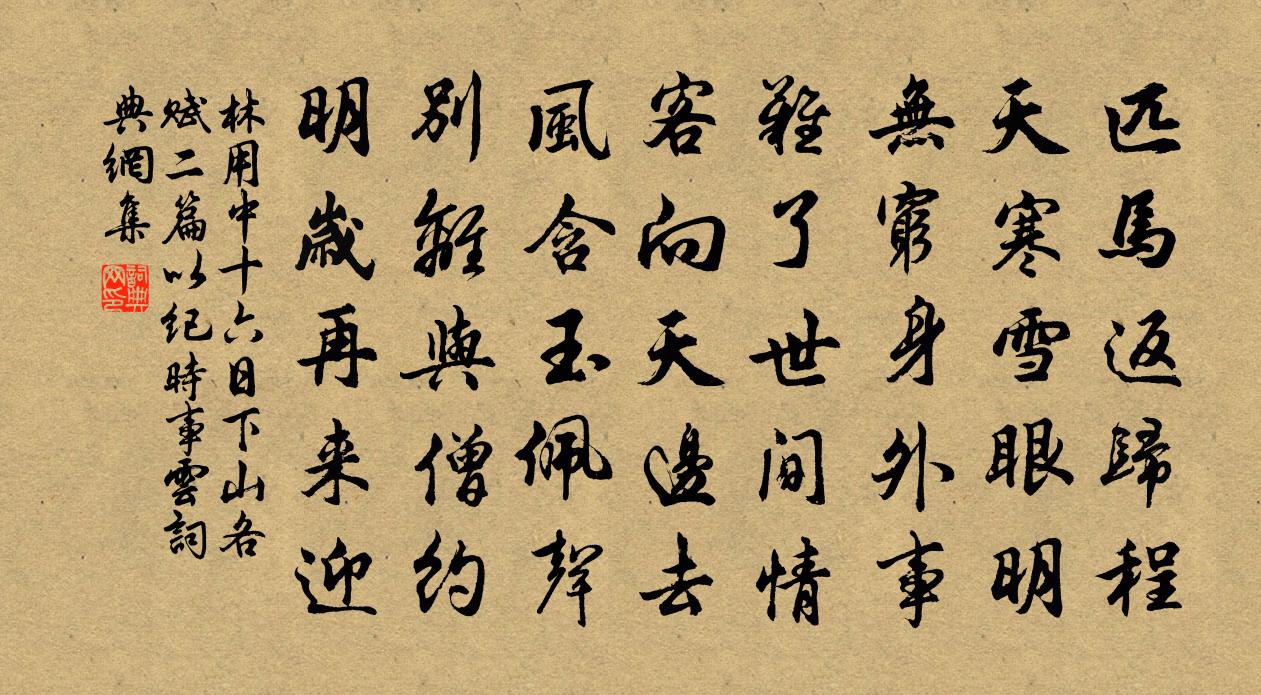 匹馬返歸程
天寒雪眼明
無窮身外事
難了世間情
客向天邊去
風含玉佩聲
別離與僧約
明歲再来迎
林用中十六日下山各
賦二篇以紀時事雲詞
典網集
詞典
网印